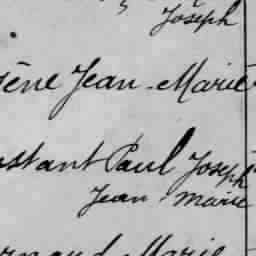 Joseph
ène Jean-Marie
nstant Paul Joseph
Jean Marie
Marie